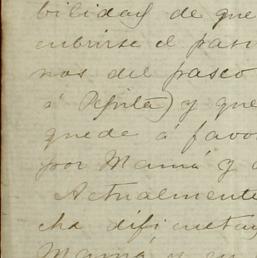 bilidad de que
cubrirse el pasi
nos del paseo
á Pepita) y que
quede á favo
por Mamá y
Actualmente
cha dificultad
Mamá y en